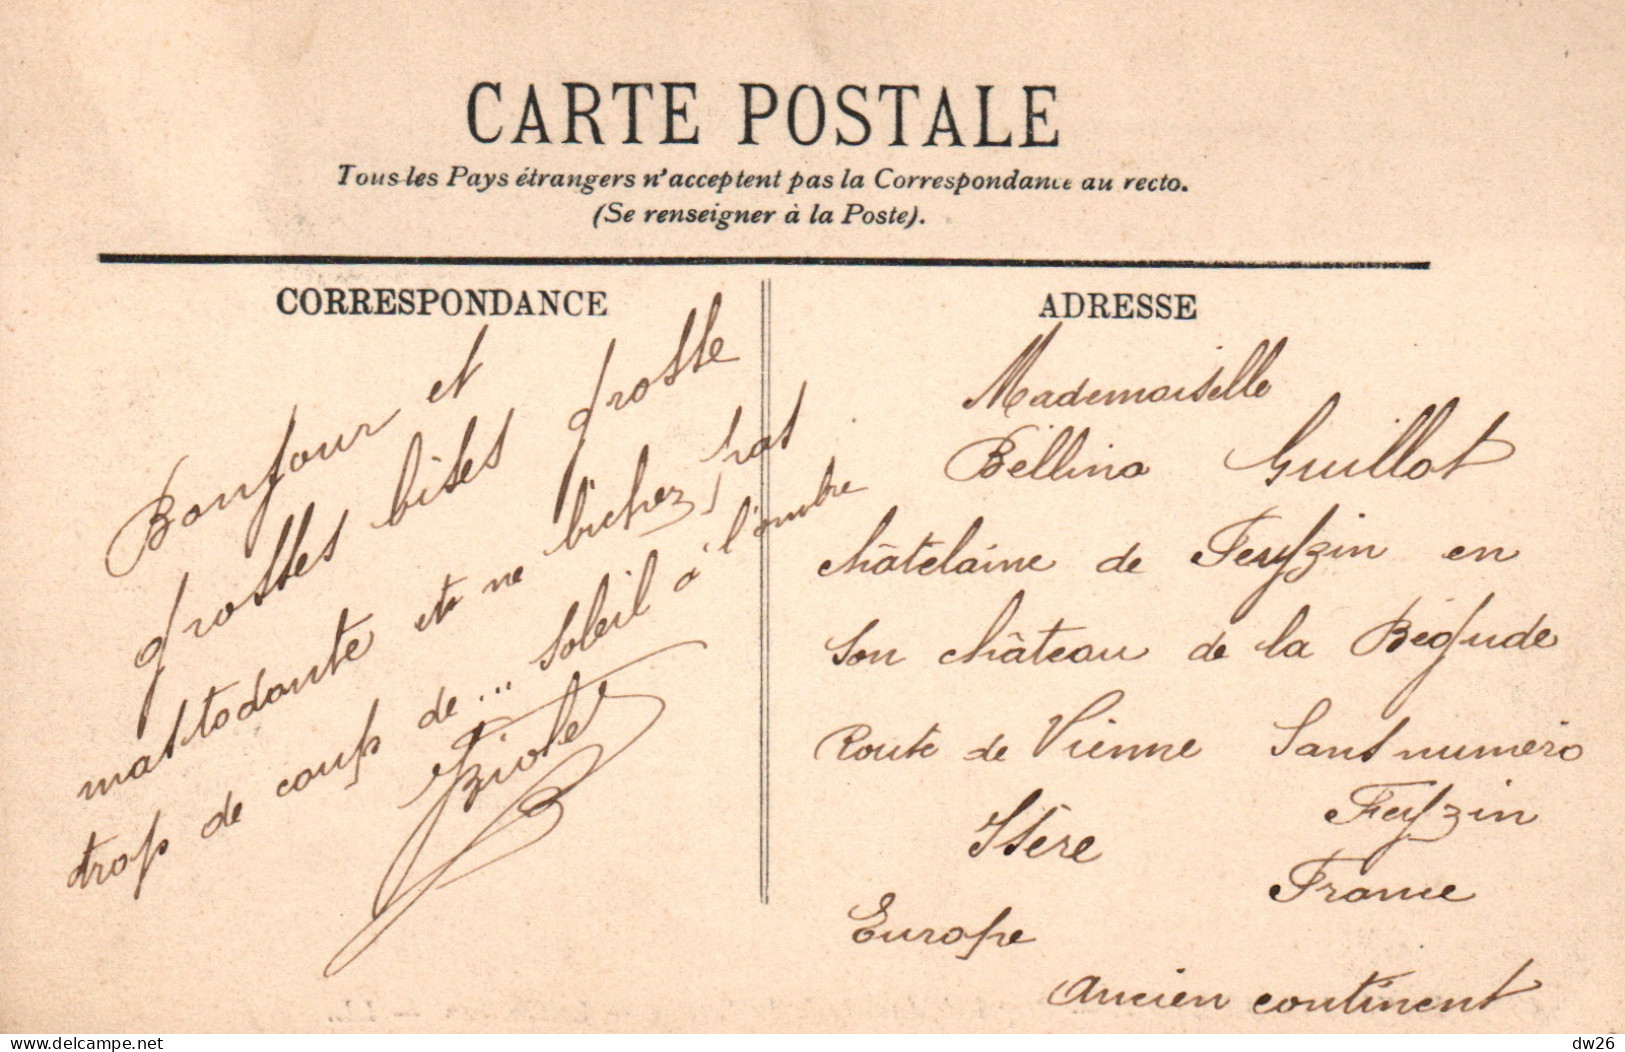 CARTE POSTALE
Tous les Pays étrangers n'acceptent pas la Correspondance au recto.
(Se renseigner à la Poste).
CORRESPONDANCE
Bonjour et
grosses bises grosse
mastodonte et ne bichez pas
trop de coups de... soleil à l'ombre
ADRESSE
Mademoiselle
Bellina Guillot
châtelaine de Feyzin en
son château de la Bégude
Route de Vienne Sans numéro
Feyzin
Isère
France
Europe
Ancien continent
delcampe.net
dw26